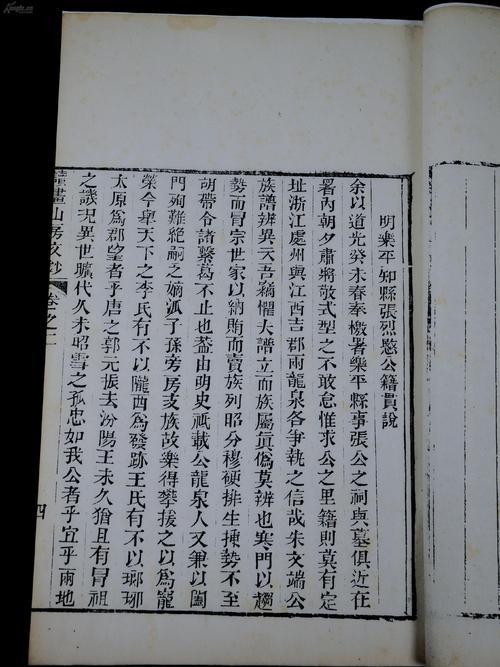 明樂平知縣張烈愍公籍貫說
余以道光癸未春奉檄署樂平縣事張公之祠與墓俱近在
署內朝夕肅將敬式型之不敢怠惟求公之里籍則莫有定
址浙江處州與江西吉郡兩龍泉各爭執之信哉朱文端公
族譜辨異云吾竊懼大譜立而族屬眞僞莫辨也寒門以趨
勢而冒宗世家以納賄而賣族列昭分穆硬排生揀勢不至
胡帶令諸繫葛不止也蓋由明史祇載公龍泉人又兼以闔
門殉難絶祠之嫡孤子孫旁房支族故樂得攀拔之以爲寵
榮今舉天下之李氏有不以隴酉爲發跡王氏有不以瑯琊
太原爲郡望者乎唐之郭元振去汾陽王未久猶且有冒祖
之譏况異世曠代久未昭雪之孤忠如我公者乎宜乎兩地
畫山房文鈔
卷之二
四